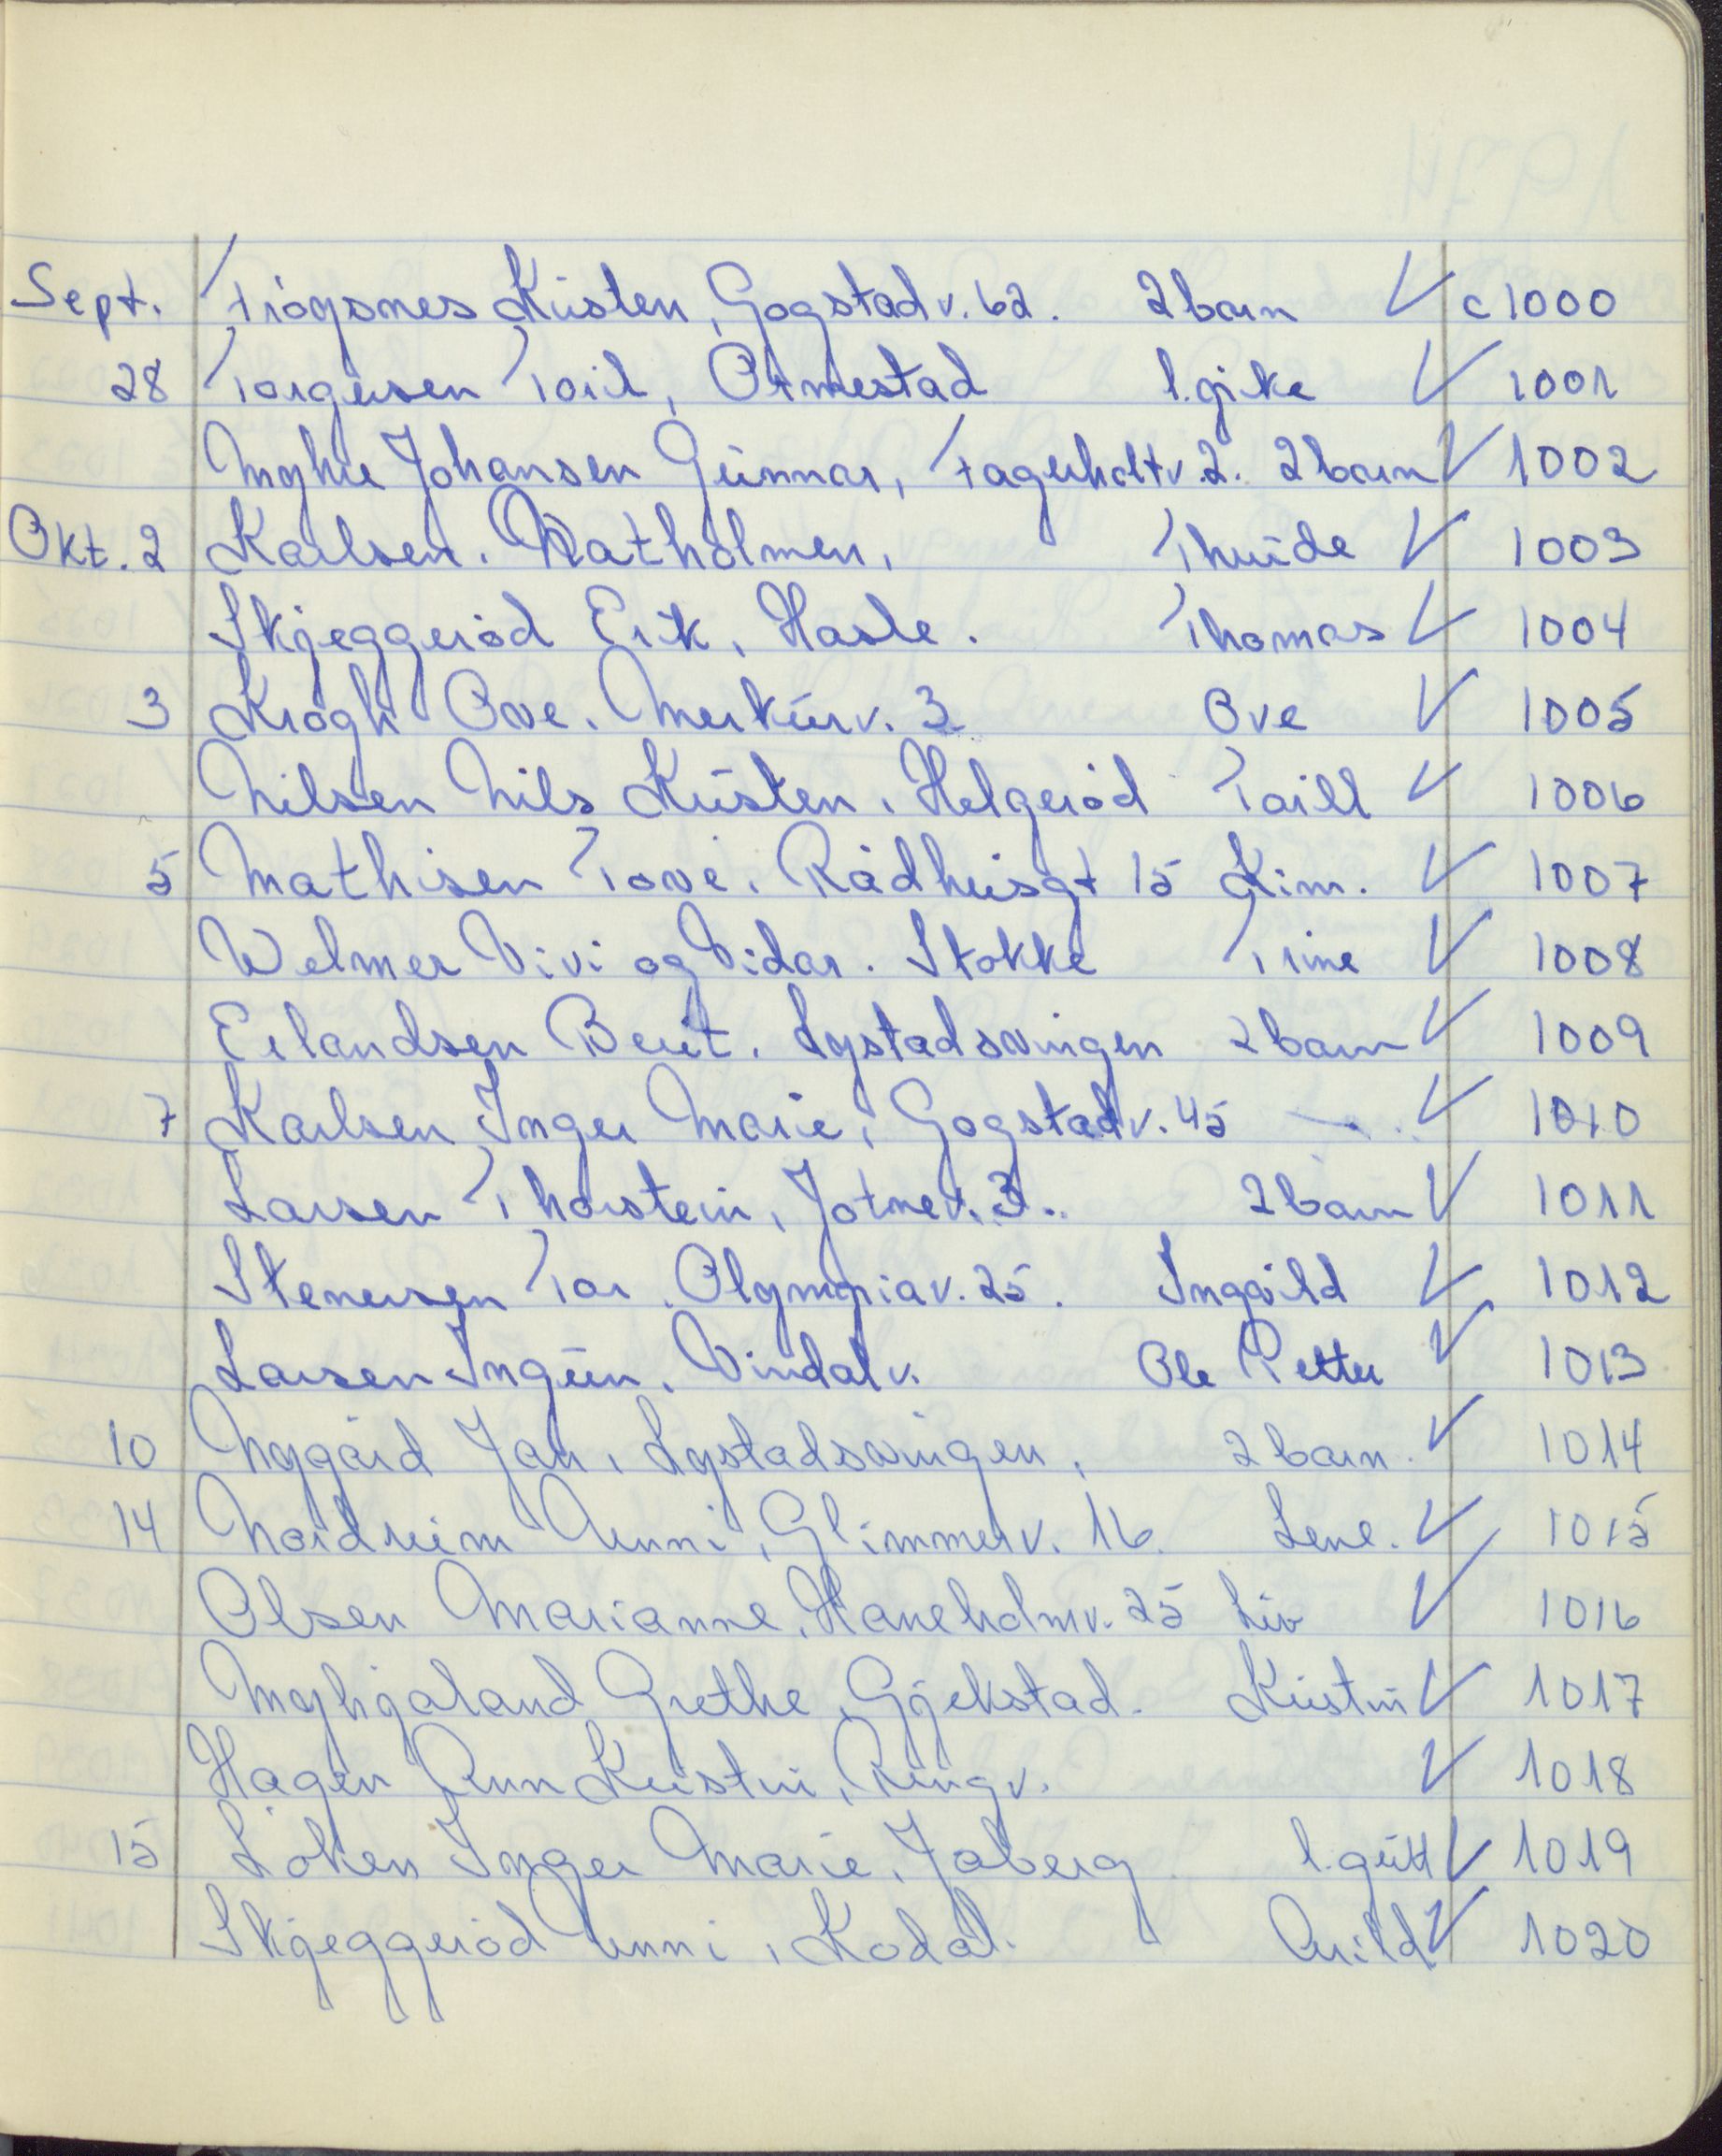 Sept. Frøysnes Kirsten, Gogstadv. 62. 2 barn ✓ c 1000
28 Torgersen Toril, Ormestad 1. pike ✓ 1001
Myhre Johansen Gunnar, Fagerholtv. 2. 2 barn ✓ 1002
Okt. 2 Karlsen. Natholmen, Thuride ✓ 1003
Skjeggerød Erik, Hasle. Thomas ✓ 1004
3 Krogh Ove. Merkurv. 3 Ove ✓ 1005
Nilsen Nils Kristen, Helgerød Torill ✓ 1006
5 Mathisen Tove. Rådhusgt 15 Kim. ✓ 1007
Welmer Vivi og Vidar. Stokke Trine ✓ 1008
Erlandsen Berit. Lystadsvingen 2 barn ✓ 1009
7 Karlsen Inger Marie, Gogstadv. 45 ✓ 1010
Larsen Thorstein, Jotnev. 3. 2 barn ✓ 1011
Stenersen Tor. Olympiav. 25. Ingvild ✓ 1012
Larsen Ingunn. Vindalv. Ole Petter ✓ 1013
10 Nygård Jan, Lystadsvingen, 2 barn. ✓ 1014
14 Nordreim Unni, Glimmerv. 16. Lene. ✓ 1015
Olsen Marianne, Haneholmv. 25 Liv ✓ 1016
Grethe, Gjekstad. Kristin ✓ 1017
Hagen Ann Kristin, Ringv. ✓ 1018
15 Løken Inger Marie, Jåberg 1. gutt ✓ 1019
Skjeggerød Unni, Kodal. Arild ✓ 1020